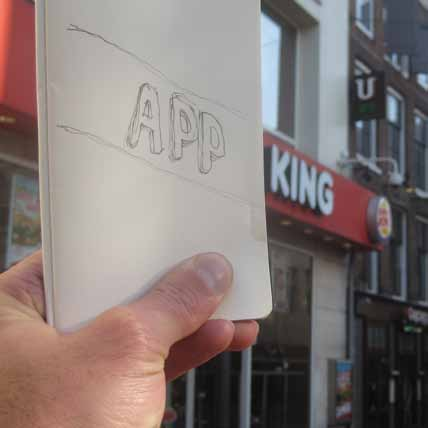 APP KING
U